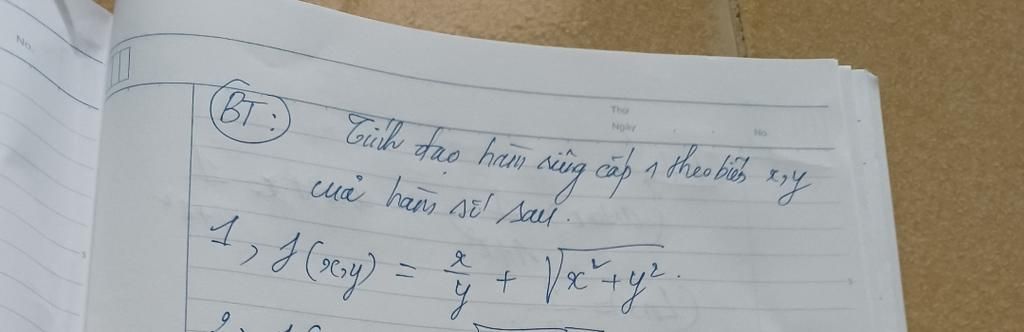 No.
Thứ
Ngày . . No
BT: Tính đạo hàm riêng cấp 1 theo biến x,y
của hàm số sau.
1, f(x,y) = x/y + √(x²+y²).